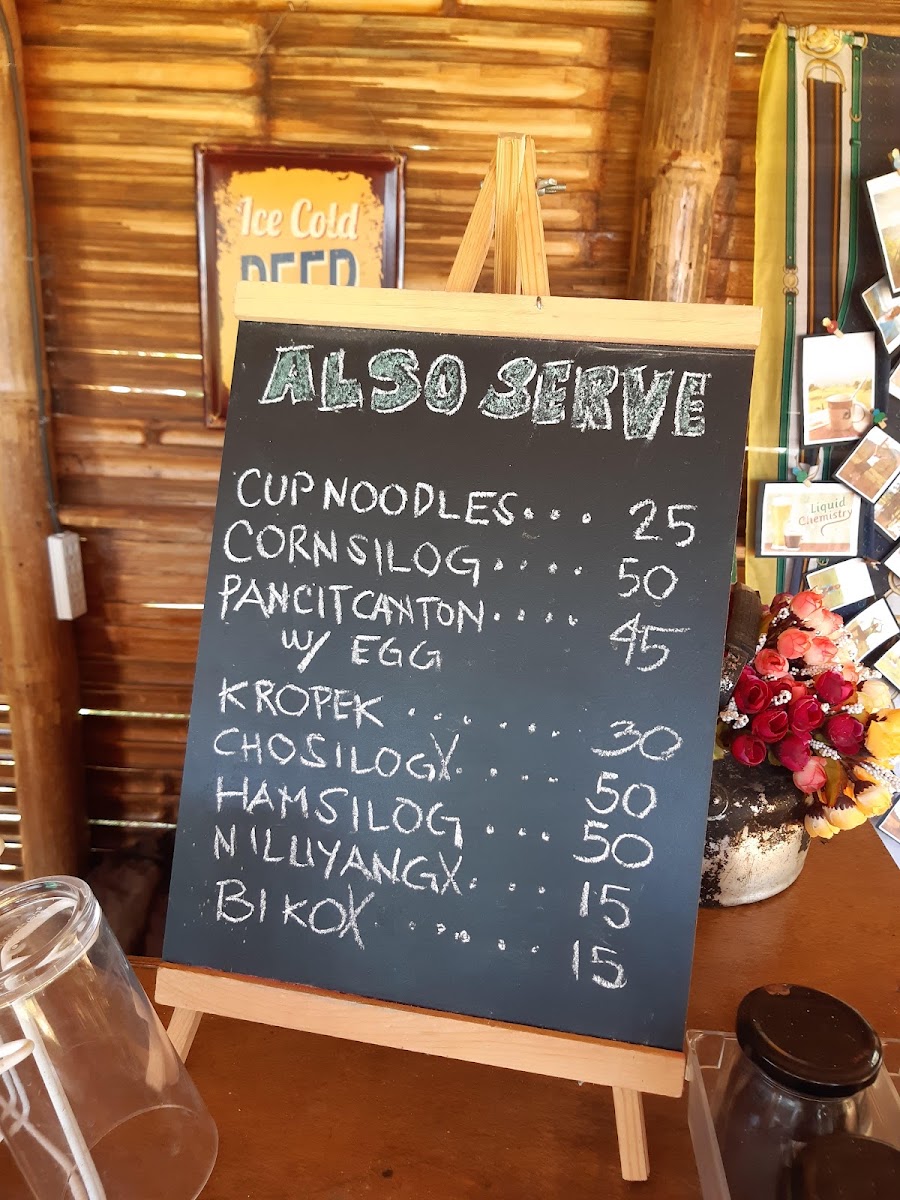 Ice Cold
BEER
ALSO SERVE
CUPNOODLES... 25
CORNSILOG.... 50
PANCIT CANTON.... 45
W/ EGG
KROPEK ..... 30
CHOSILOGX.... 50
HAMSILOG... 50
NILUYANGX... 15
BIKOX...... 15
Liquid
Chemistry